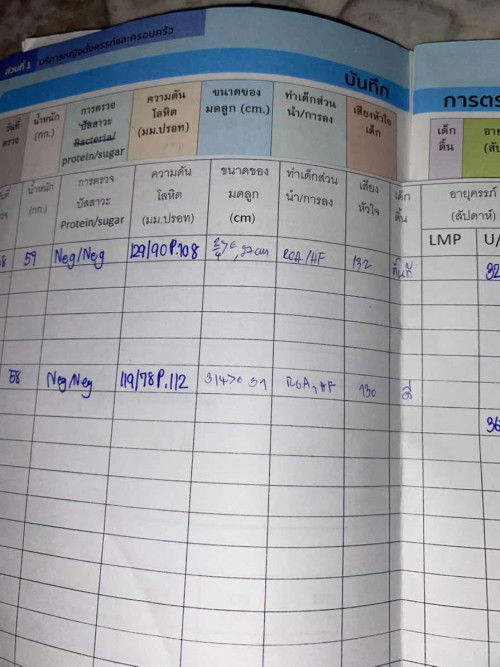 ส่วนที่ 1 บริการหญิงตั้งครรภ์และครอบครัว
บันทึก
การตร
วันที่
ตรวจ
น้ำหนัก
(กก.)
การตรวจ
ปัสสาวะ
Bacteria/
protein/sugar
ความดัน
โลหิต
(มม.ปรอท)
ขนาดของ
มดลูก (cm.)
ท่าเด็กส่วน
นำ/การลง
เสียงหัวใจ
เด็ก
เด็ก
ดิ้น
น้ำหนัก
(กก.)
การตรวจ
ปัสสาวะ
Protein/sugar
ความดัน
โลหิต
(มม.ปรอท)
ขนาดของ
มดลูก
(cm)
ท่าเด็กส่วน
นำ/การลง
เสียง
หัวใจ
เด็ก
ดิ้น
อายุครรภ์
(สัปดาห์)
LMP U/
59 Neg/Neg 129/90 P.108 27cm ROA/HF 132 32
58 Neg/Neg 119/78 P.112 3/4>๏ 31 ROA, HF 130 ดี
36